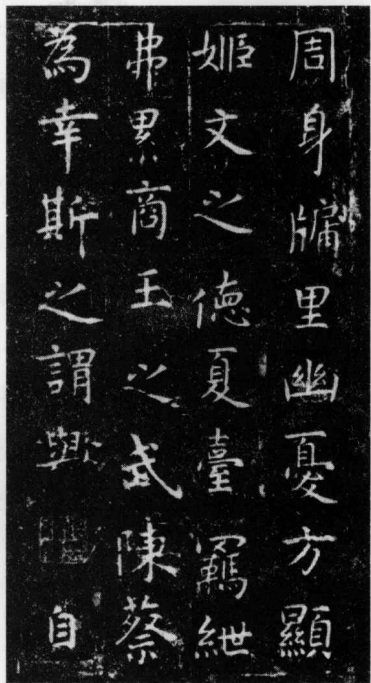 周身牖里幽憂方顯
姬文之德夏臺羈紲
弗累商王之武陳蔡
為幸斯之謂歟 自